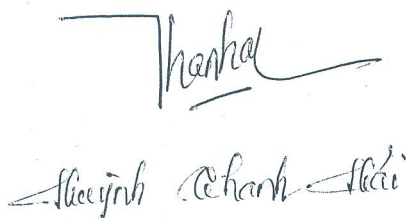 Thanhai
Huỳnh Thanh Hải